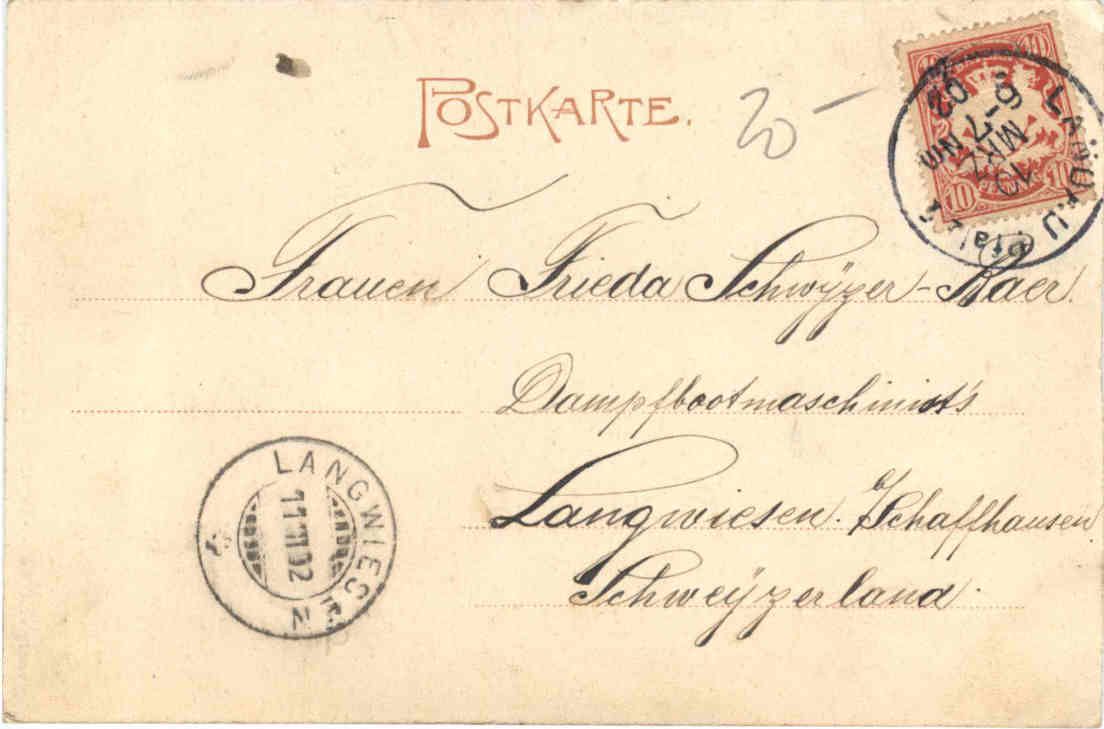 POSTKARTE.
20 –
10
10
10
10
LANDAU
(Pfalz)
10 MRZ
6–7 NM
02
Frauen Frieda Schwÿzer-Baer.
Dampfbootmaschinist's
Langwiesen. b/Schaffhausen
Schweÿzerland.
LANGWIESEN
11.III.02